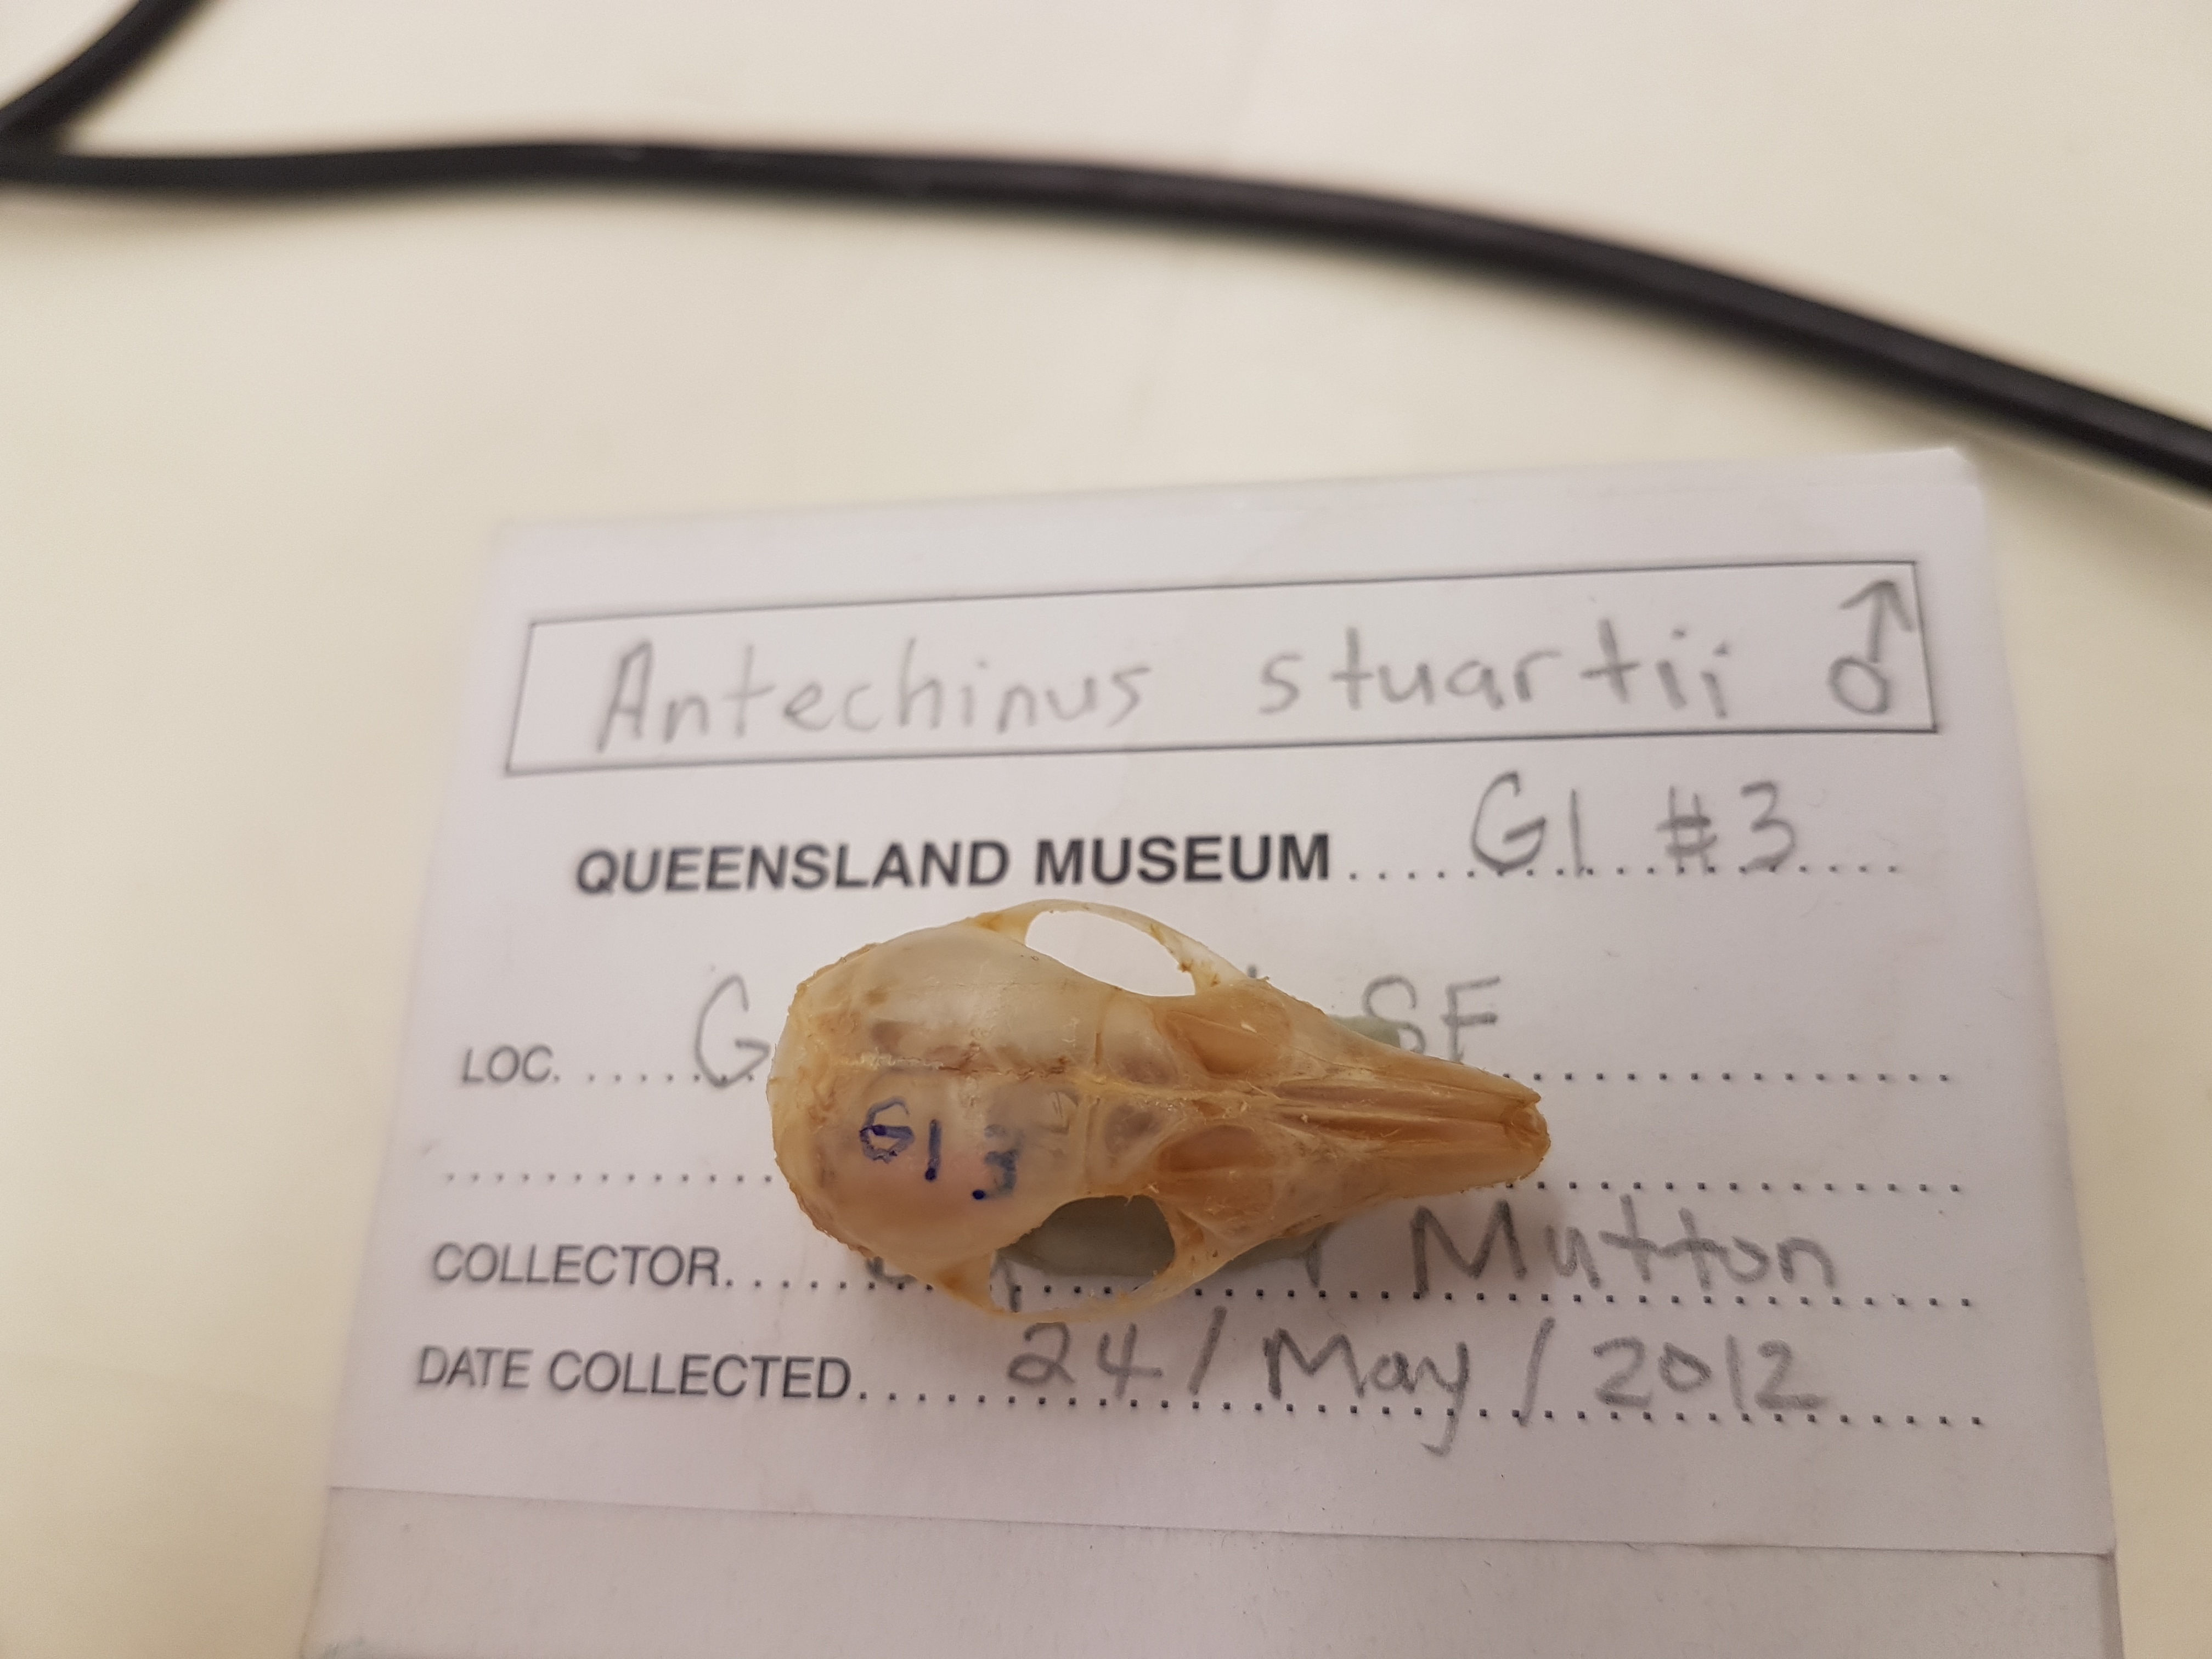 Antechinus stuartii ♂
QUEENSLAND MUSEUM ..... G1 #3 ....
LOC. ...... G SF ..........
COLLECTOR. ..... Mutton ....
DATE COLLECTED ..... 24 / May / 2012 ....
G1 3